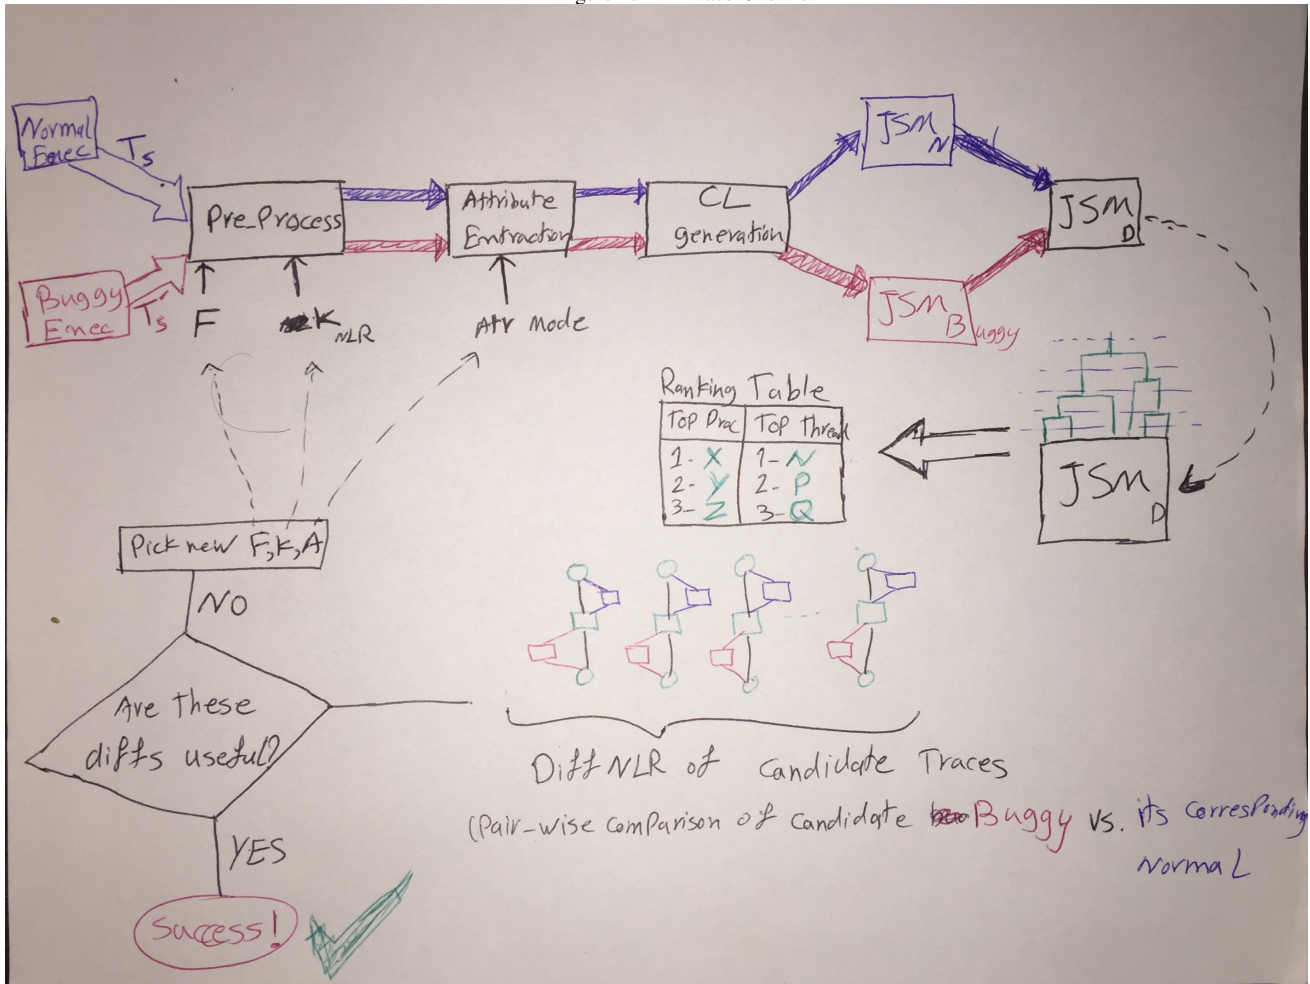 Normal
Exec
Ts
Pre_Process
Attribute
Extraction
CL
generation
JSM N
JSM D
Buggy
Exec
T's
F
K NLR
Atr mode
JSM Buggy
Ranking Table
Top Proc
Top Thread
1- X
1- N
2- Y
2- P
3- Z
3- Q
JSM D
Pick new F,K,A
NO
Are these
diffs useful?
YES
Success!
Diff NLR of Candidate Traces
(Pair-wise comparison of candidate Buggy vs. its corresponding
Normal